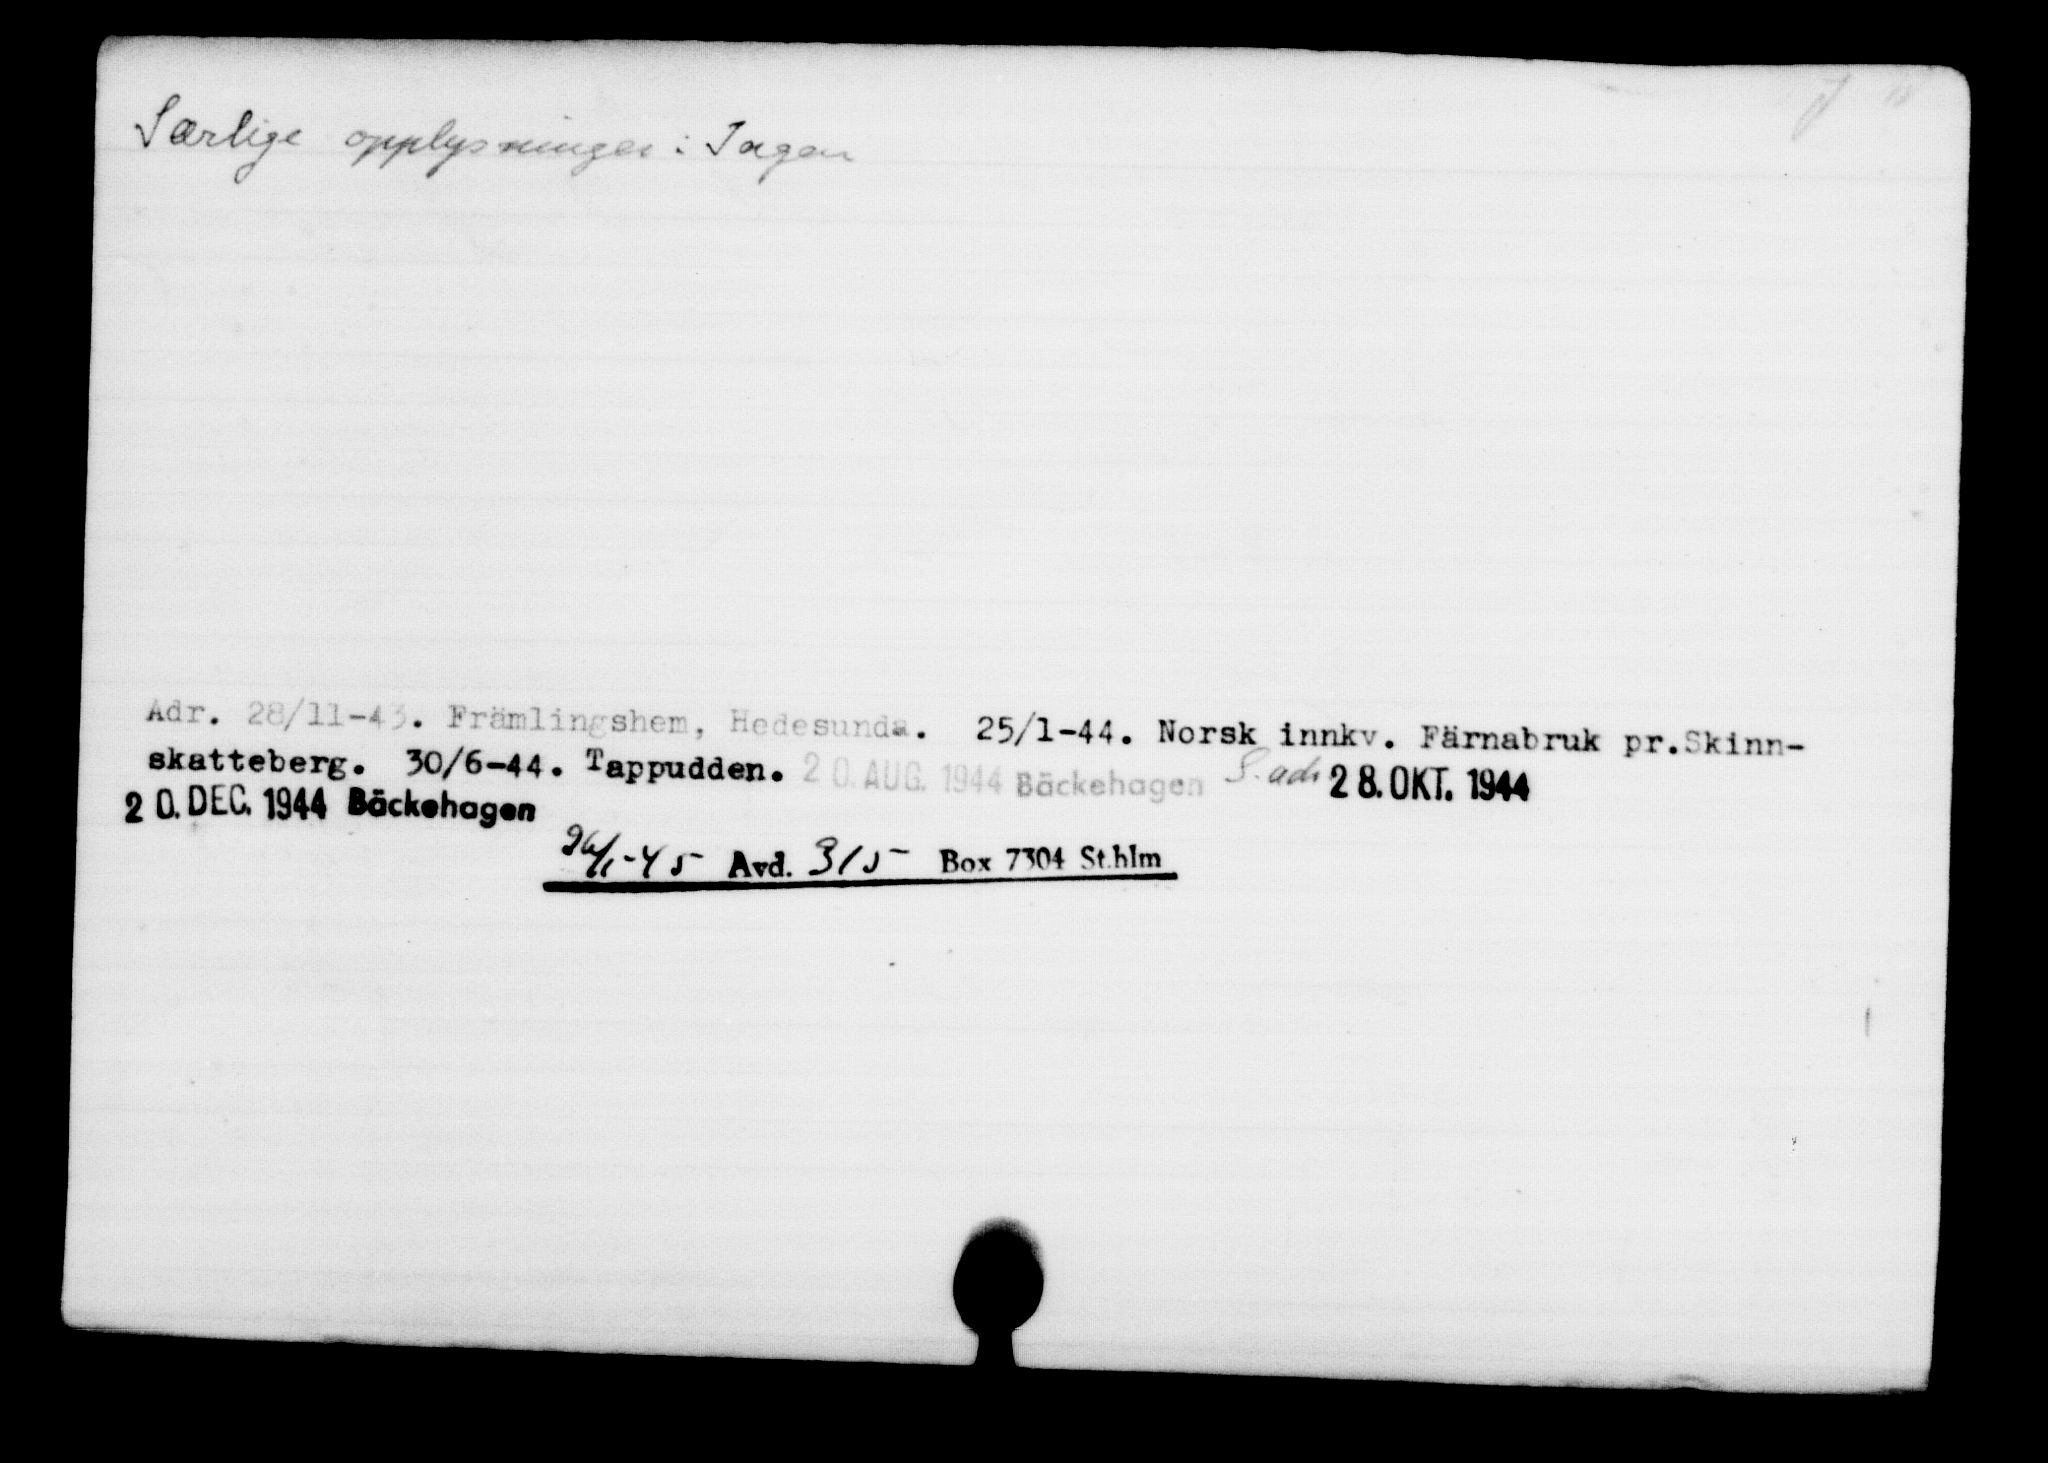 Særlige opplysninger: Ingen
Adr. 28/11-43. Främlingshem, Hedesunda. 25/1-44. Norsk innkv. Färnabruk pr.Skinn-
skatteberg. 30/6-44. Tappudden. 20. AUG. 1944 Bäckehagen S. adr 28. OKT. 1944
20. DEC. 1944 Bäckehagen
26/1-45 Avd. 315 Box 7304 St.hlm